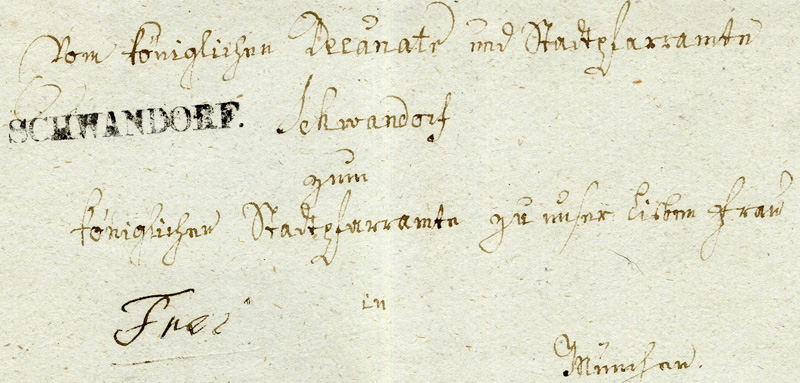 Vom königlichen Decanate und Stadtpfarramte
SCHWANDORF.
Schwandorf
zum
königlichen Stadtpfarramte zu unser lieben Frau
in
Frei
München.